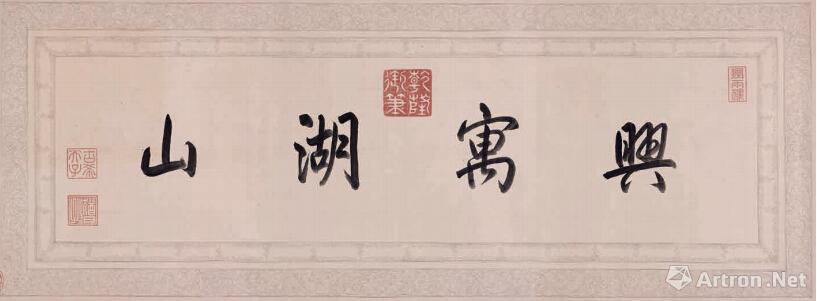 興寓湖山
乾隆御筆
Artron.Net